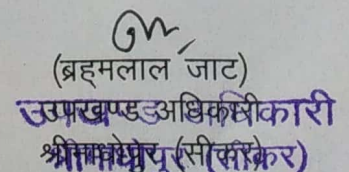 (ब्रहमलाल जाट)
उपखण्ड अधिकारी
श्रीमाधोपुर (सीकर)